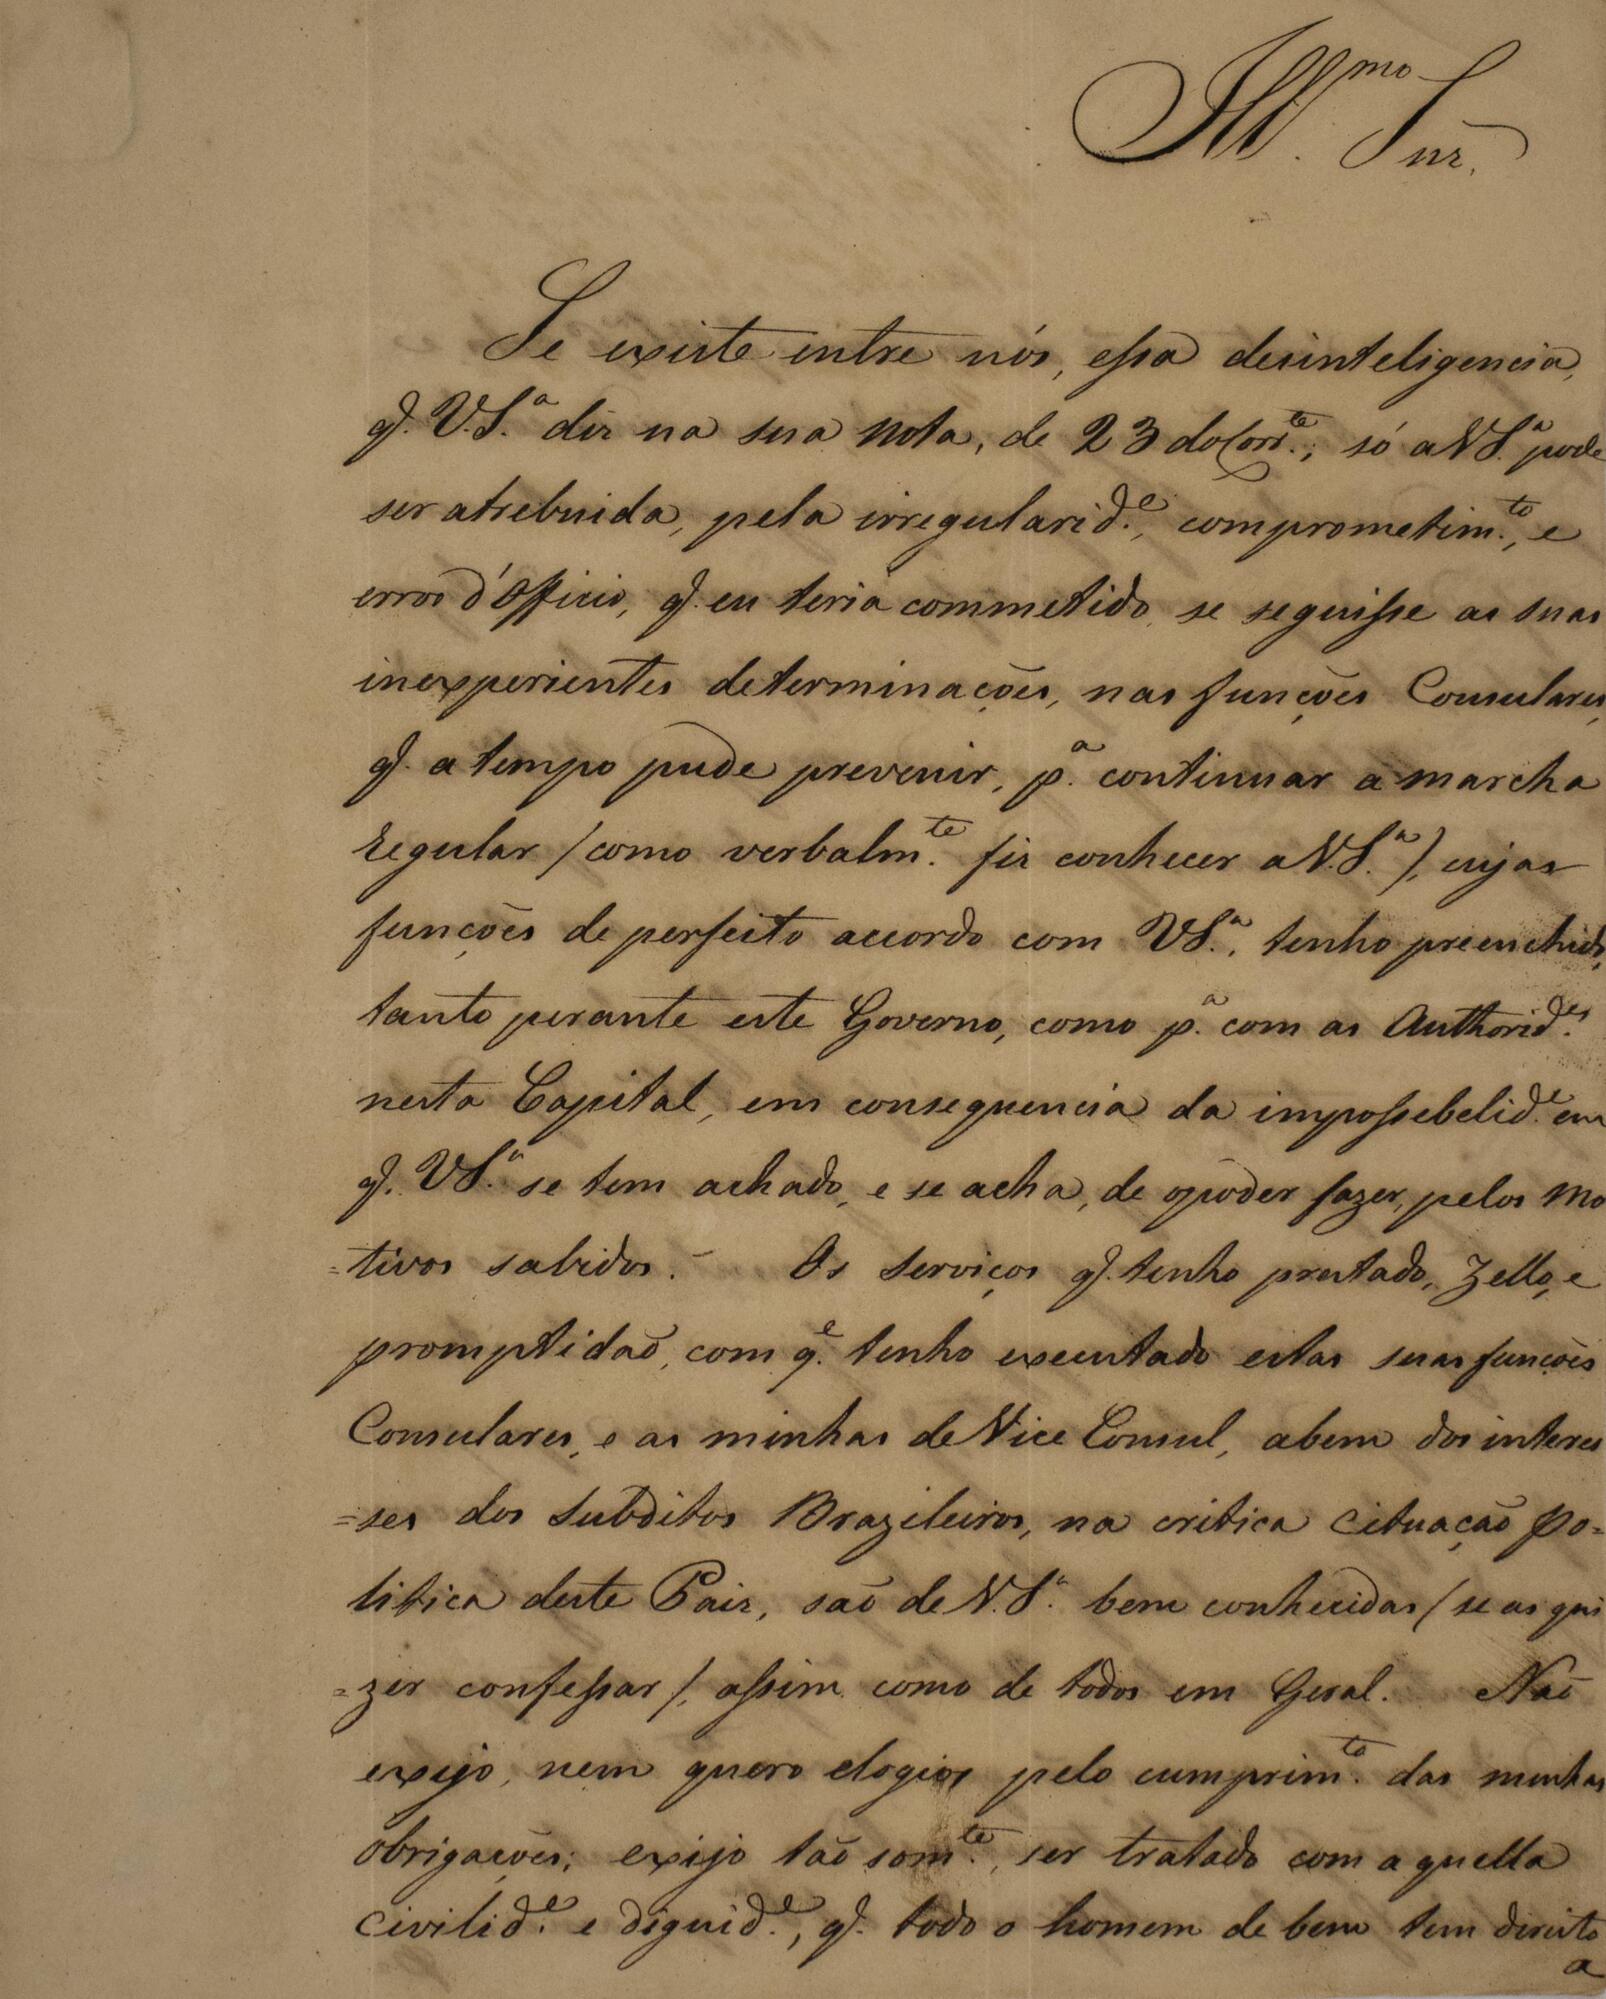 Ill.mo Snr.
Se existe entre nós, essa desinteligencia,
q. V.S.a diz na sua Nota, de 23 do Corr.te, só a V.S.a pode
ser atrebuida, pela irregularid.e, comprometim.to, e
erros d'Officio, q. eu teria commetido, se seguisse as suas
inexperientes determinações, nas funções Consulares,
q. a tempo pude prevenir, p.a continuar a marcha
regular / como verbalm.te fiz conhecer a V.S.a /, cujas
funções de perfeito accordo com V.S.a, tenho preenchido,
tanto perante este Governo, como p.a com as Authorid.es
nesta Capital, em consequencia da impossebelid.e em
q. V.S.a se tem achado, e se acha, de o poder fazer, pelos Mo
=tivos sabidos. - Os Serviços q. tenho prestado, Zello, e
promptidaõ, com q.e tenho executado estas suas funcoẽs
Consulares, e as minhas de Vice Consul, abem dos interes
=ses dos Subditos Brazileiros, na critica Cituaçaõ Po-
litica deste Paiz, saõ de V.S.a bem conhecidas / se as qui
=zer confessar /, assim como de todos em Geral. Naõ
exijo, nem quero elogios pelo cumprim.to das minhas
obrigações; exijo taõ som.te, ser tratado com aquella
Civilid.e e dignid.e, q. todo o homem de bem tem direito
a